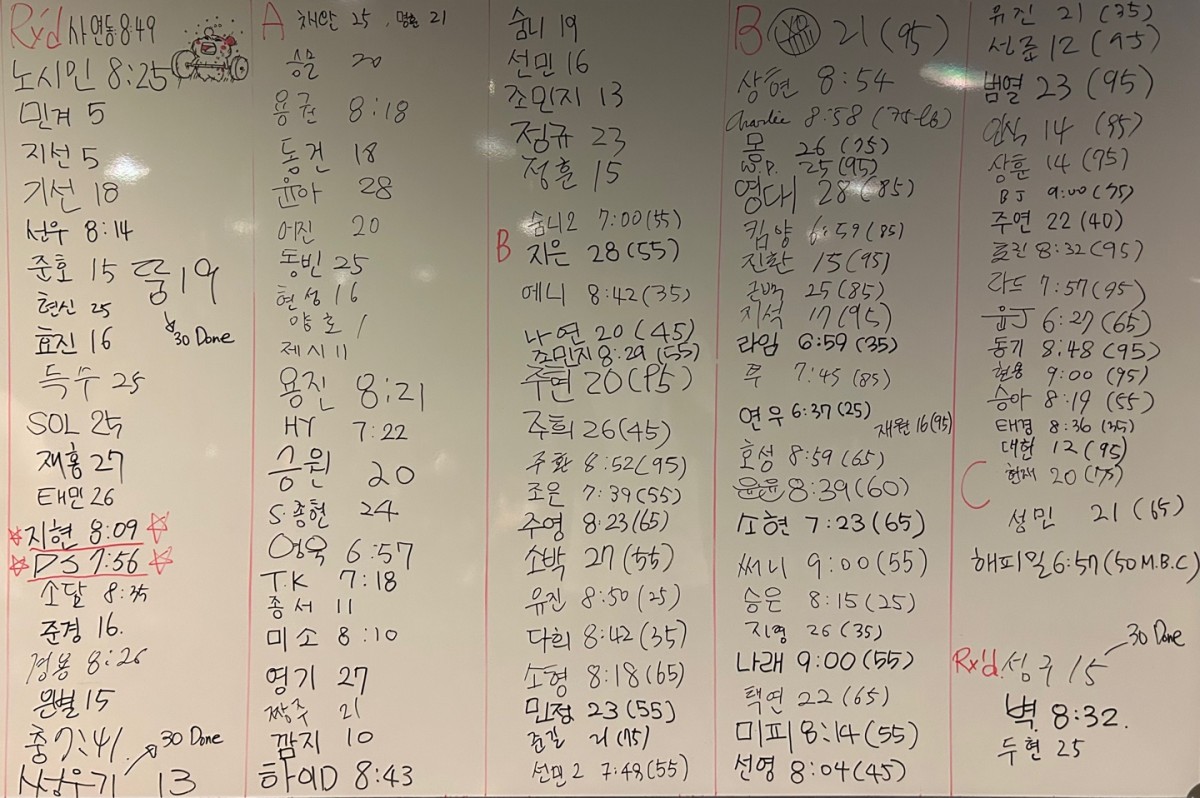 Rx'd 샤 연동 8:49
노시민 8:25
민겨 5
지선 5
기선 18
선우 8:14
준호 15
뚱 19
30 Done
현신 25
효진 16
득수 25
SOL 25
재홍 27
태민 26
지현 8:09
DS 7:56
소달 8:35
준경 16.
경용 8:26
은별 15
30 Done
13
A 채만 25, 명훈 21
승물 20
용권 8:18
동건 18
윤아 28
어진 20
동빈 25
현성 16
양호 1
제시 11
용진 8:21
HY 7:22
승원 20
S.종현 24
영욱 6:57
T.K 7:18
종서 11
미소 8:10
영기 27
짱주 21
깜지 10
하이D 8:43
숨니 19
선민 16
조민지 13
정규 23
정훈 15
숨니2 7:00 (55)
B 지은 28 (55)
에니 8:42 (35)
나연 20 (45)
조민지 8:29 (55)
주연 20 (95)
주희 26 (45)
주환 8:52 (95)
조은 7:39 (55)
주영 8:23 (65)
소박 27 (55)
유진 8:50 (25)
다희 8:42 (35)
소형 8:18 (65)
민정 23 (55)
준길 21 (75)
선민2 7:48 (55)
B 21 (95)
상현 8:54
Charlie 8:58 (75-lb)
몽 26 (75)
W.P. 25 (95)
영대 28 (85)
킴양 6:59 (85)
진환 15 (95)
근백 25 (85)
지석 17 (95)
라임 6:59 (35)
투 7:45 (85)
연우 6:37 (25)
재원 16 (95)
호성 8:59 (65)
윤윤 8:39 (60)
소현 7:23 (65)
써니 9:00 (55)
승은 8:15 (25)
지영 26 (35)
나래 9:00 (55)
택연 22 (65)
미피 8:14 (55)
선영 8:04 (45)
유진 21 (75)
서준 12 (95)
범열 23 (95)
인식 14 (95)
상훈 14 (75)
BJ 9:00 (75)
주연 22 (40)
효진 8:32 (95)
라드 7:57 (95)
윤J 6:27 (65)
동기 8:48 (95)
현용 9:00 (95)
승아 8:19 (55)
태경 8:36 (35)
대헌 12 (95)
현재 20 (75)
C
성민 21 (65)
해피밀 6:57 (50 M.B.C)
30 Done
Rx'd. 성구 15
벽 8:32.
두현 25